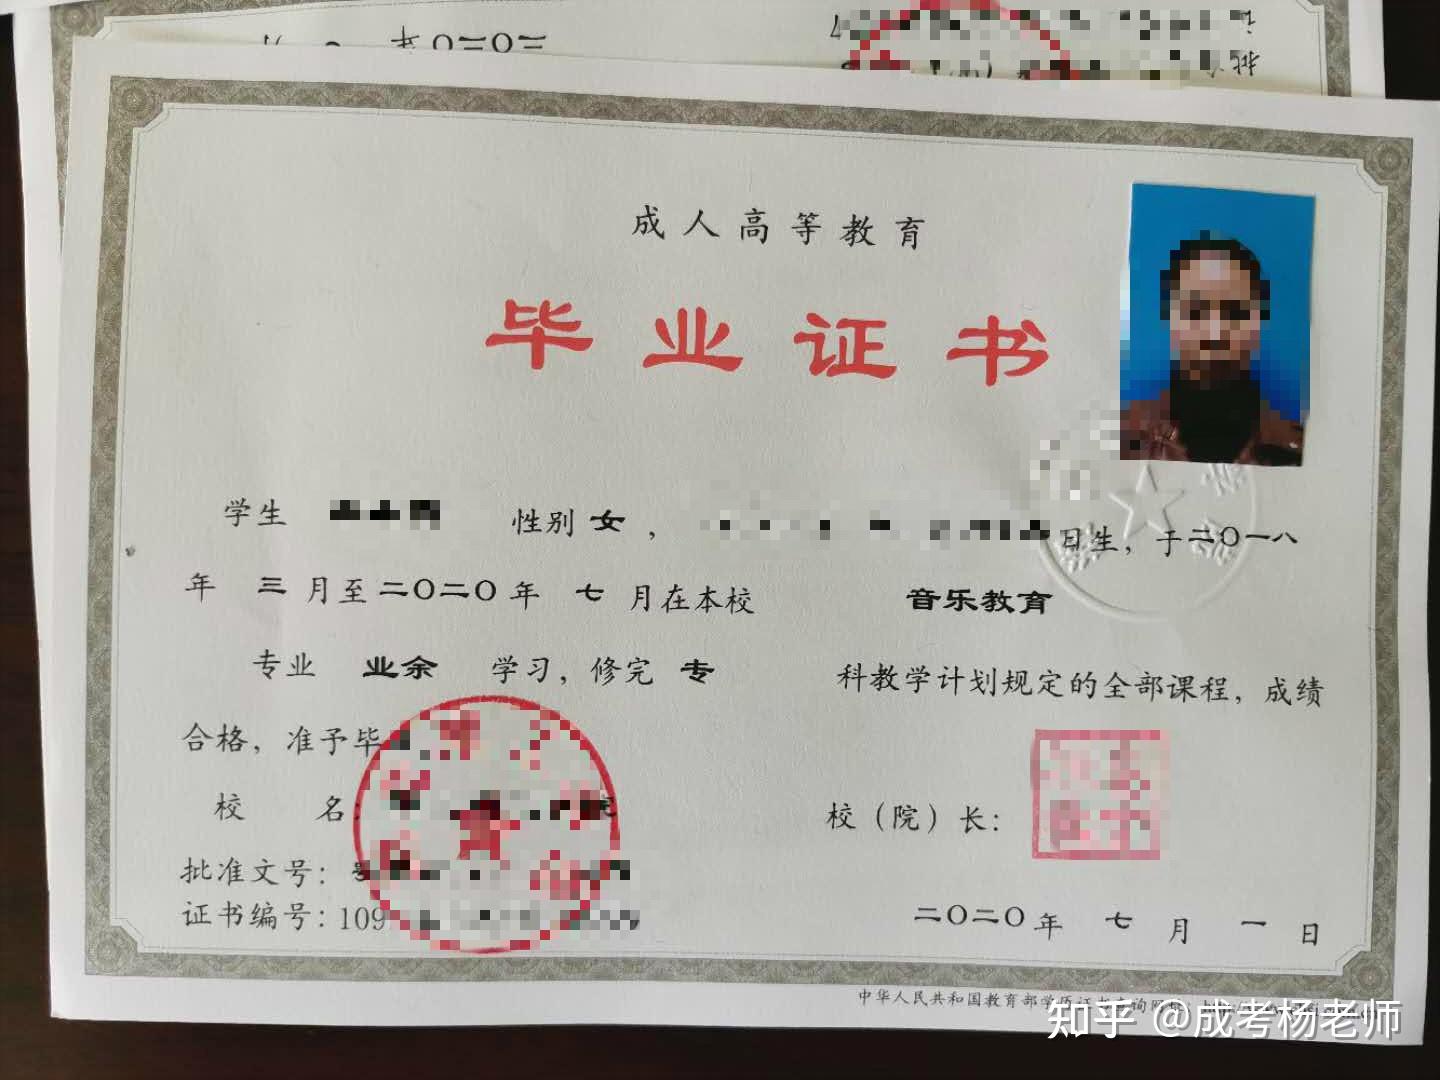 二〇二〇年
成人高等教育
毕业证书
学生 性别 女， 日生，于二〇一八
年 三 月至 二〇二〇 年 七 月在本校 音乐教育
专业 业余 学习，修完 专 科教学计划规定的全部课程，成绩
合格，准予毕
校 名： 校（院）长：
批准文号：
证书编号：109
二〇二〇 年 七 月 一 日
中华人民共和国教育部学历证书查询网址：
知乎 @成考杨老师